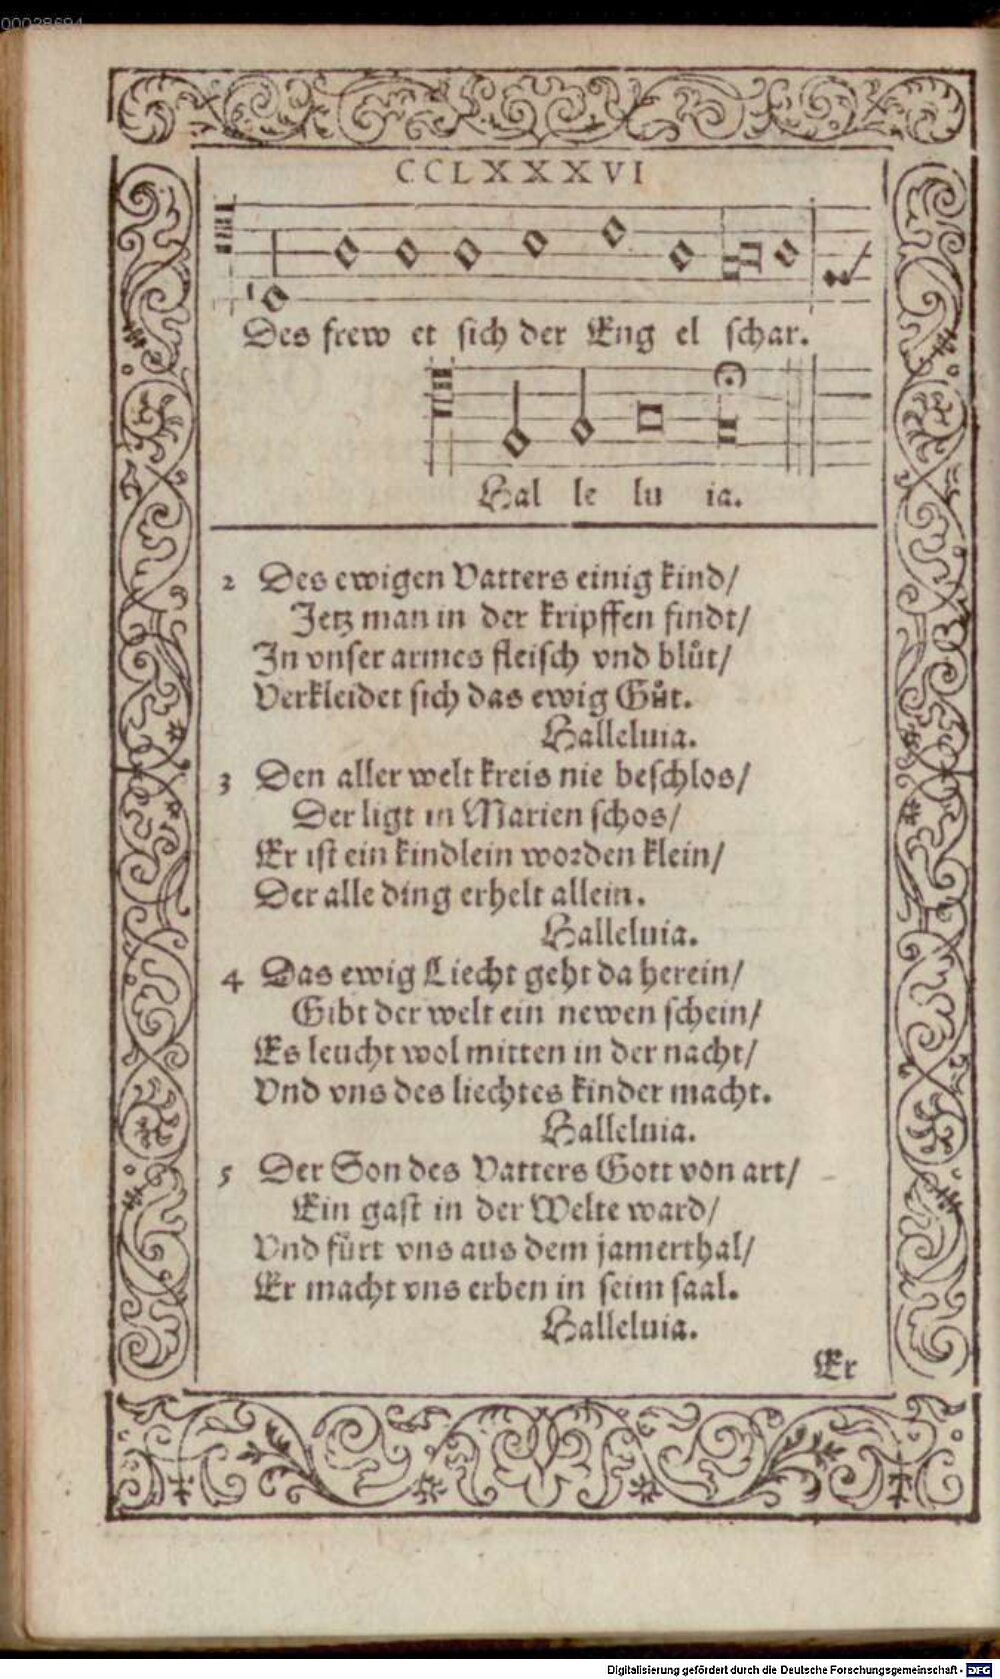 00028694
CCLXXXVI
Des frew et sich der Eng el schar.
Hal le lu ia.
2 Des ewigen Vatters einig kind/
Jetz man in der kripffen findt/
In vnser armes fleisch vnd blůt/
Verkleidet sich das ewig Gůt.
Halleluia.
3 Den aller welt kreis nie beschlos/
Der ligt in Marien schos/
Er ist ein kindlein worden klein/
Der alle ding erhelt allein.
Halleluia.
4 Das ewig Liecht geht da herein/
Gibt der welt ein newen schein/
Es leucht wol mitten in der nacht/
Vnd vns des liechtes kinder macht.
Halleluia.
5 Der Son des Vatters Gott von art/
Ein gast in der Welte ward/
Vnd fürt vns aus dem jamerthal/
Er macht vns erben in seim saal.
Halleluia.
Er
Digitalisierung gefördert durch die Deutsche Forschungsgemeinschaft - DFG